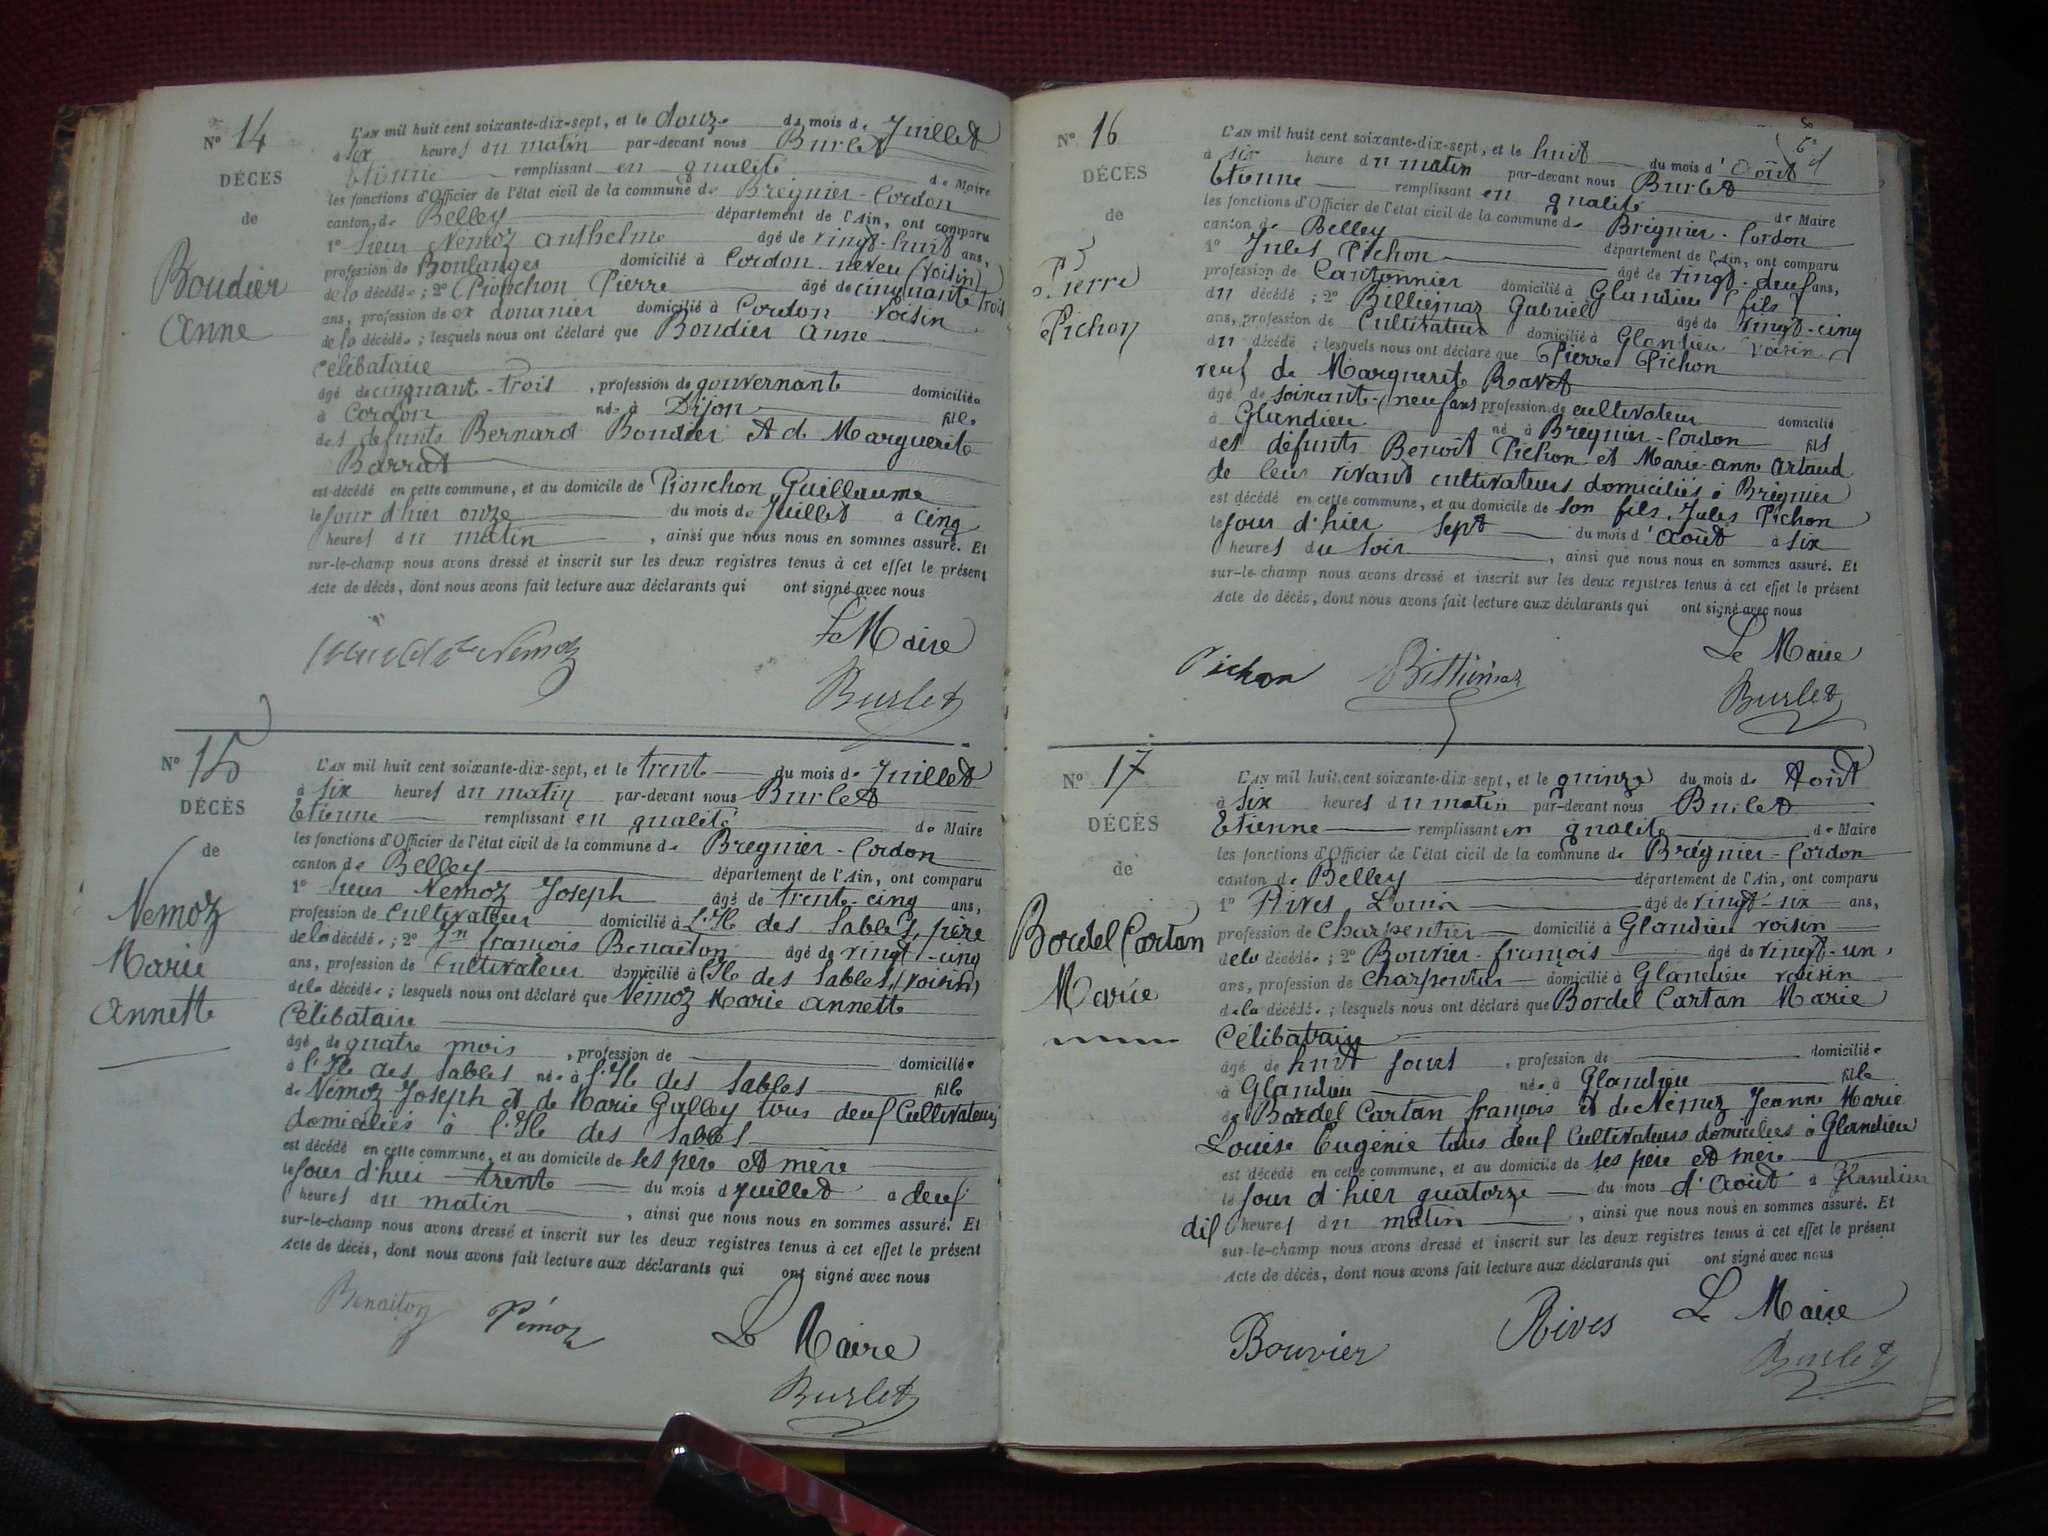 Nº 14
DÉCÈS
de
Boudier
Anne
L'AN mil huit cent soixante-dix-sept, et le douze du mois de Juillet
à six heures du matin par-devant nous Burlet
Etienne remplissant en qualité de Maire
les fonctions d'Officier de l'état civil de la commune de Brégnier-Cordon
canton de Belley département de l'Ain, ont comparu
1º sieur Nemoz Anthelme âgé de vingt-huit ans,
profession de Boulanger domicilié à Cordon neveu (voisin)
de la décédée; 2º Pionchon Pierre âgé de cinquante trois
ans, profession de ex douanier domicilié à Cordon voisin
de la décédée; lesquels nous ont déclaré que Boudier Anne
Célibataire
âgé de cinquant-trois, profession de gouvernante domiciliée
à Cordon née à Dijon fille
des défunts Bernard Boudier et de Marguerite
Barrat
est décédé en cette commune, et au domicile de Pionchon Guillaume
le jour d'hier onze du mois de Juillet à cinq
heures du matin, ainsi que nous nous en sommes assuré. Et
sur-le-champ nous avons dressé et inscrit sur les deux registres tenus à cet effet le présent
Acte de décès, dont nous avons fait lecture aux déclarants qui ont signé avec nous
Nemoz
Le Maire
Burlet
Nº 15
DÉCÈS
de
Nemoz
Marie
Annette
L'AN mil huit cent soixante-dix-sept, et le trente du mois de Juillet
à six heures du matin par-devant nous Burlet
Etienne remplissant en qualité de Maire
les fonctions d'Officier de l'état civil de la commune de Bregnier-Cordon
canton de Belley département de l'Ain, ont comparu
1º sieur Nemoz Joseph âgé de trente-cinq ans,
profession de Cultivateur domicilié à L'Ile des Sables, père
de la décédée; 2º Jn françois Benaiton âgé de vingt-cinq
ans, profession de Cultivateur domicilié à l'Ile des Sables, (voisin)
de la décédée; lesquels nous ont déclaré que Némoz Marie Annette
Célibataire
âgé de quatre mois, profession de domiciliée
à l'Ile des Sables née à l'Ile des Sables fille
de Némoz Joseph et de Marie Galley tous deuf Cultivateurs
domiciliés à l'Ile des Sables
est décédé en cette commune, et au domicile de ses père et mère
le jour d'hui trente du mois d Juillet à deuf
heures du matin, ainsi que nous nous en sommes assuré. Et
sur-le-champ nous avons dressé et inscrit sur les deux registres tenus à cet effet le présent
Acte de décès, dont nous avons fait lecture aux déclarants qui ont signé avec nous
Benaiton Némoz Le Maire
Burlet
Nº 16
DÉCÈS
de
Pierre
Pichon
L'AN mil huit cent soixante-dix-sept, et le huit du mois d'Août
à six heure du matin par-devant nous Burlet
Etienne remplissant en qualité de Maire
les fonctions d'Officier de l'état civil de la commune de Brégnier-Cordon
canton de Belley département de l'Ain, ont comparu
1º Jules Pichon âgé de vingt-deuf ans,
profession de Cantonnier domicilié à Glandieu fils
du décédé; 2º Billiémaz Gabriel âgé de vingt-cinq
ans, profession de Cultivateur domicilié à Glandieu voisin
du décédé; lesquels nous ont déclaré que Pierre Pichon
veuf de Marguerite Ravet
âgé de soixante-neuf ans profession de cultivateur domicilié
à Glandieu né à Brégnier-Cordon fils
des défunts Benoît Pichon et Marie-Anne Artaud
de leur vivant cultivateurs domiciliés à Brégnier
est décédé en cette commune, et au domicile de son fils, Jules Pichon
le jour d'hier sept du mois d'Août à six
heures du soir, ainsi que nous nous en sommes assuré. Et
sur-le-champ nous avons dressé et inscrit sur les deux registres tenus à cet effet le présent
Acte de décès, dont nous avons fait lecture aux déclarants qui ont signé avec nous
Pichon Billiémaz Le Maire
Burlet
Nº 17
DÉCÈS
de
Bordel Cartan
Marie
L'AN mil huit cent soixante-dix-sept, et le quinze du mois de Août
à six heures du matin par-devant nous Burlet
Etienne remplissant en qualité de Maire
les fonctions d'Officier de l'état civil de la commune de Brégnier-Cordon
canton de Belley département de l'Ain, ont comparu
1º Rives Louis âgé de vingt-six ans,
profession de Charpentier domicilié à Glandieu voisin
de la décédée; 2º Bouvier françois âgé de vingt-un
ans, profession de Charpentier domicilié à Glandieu voisin
de la décédée; lesquels nous ont déclaré que Bordel Cartan Marie
Célibatrain
âgé de huit jours, profession de domiciliée
à Glandieu née à Glandieu fille
de Bordel Cartan françois et de Némoz Jeanne Marie
Louise Eugénie tous deuf Cultivateurs domiciliés à Glandieu
est décédé en cette commune, et au domicile de ses père et mère
le jour d'hier quatorze du mois d'Août à Glandieu
dif heures du matin, ainsi que nous nous en sommes assuré. Et
sur-le-champ nous avons dressé et inscrit sur les deux registres tenus à cet effet le présent
Acte de décès, dont nous avons fait lecture aux déclarants qui ont signé avec nous
Bouvier Rives Le Maire
Burlet